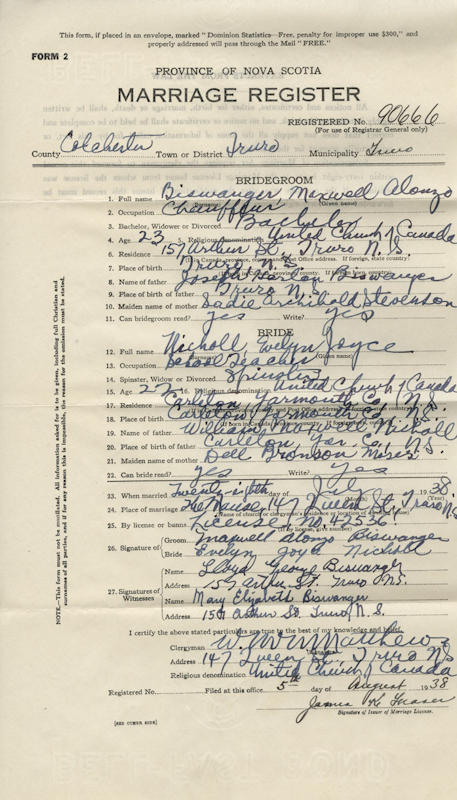 This form, if placed in an envelope, marked "Dominion Statistics—Free, penalty for improper use $300," and
properly addressed will pass through the Mail "FREE."
FORM 2
PROVINCE OF NOVA SCOTIA
MARRIAGE REGISTER
REGISTERED No. 90666
(For use of Registrar General only)
County Colchester Town or District Truro Municipality Truro
BRIDEGROOM
1. Full name Biswanger Maxwell Alonzo
(Surname) (Given name)
2. Occupation Chauffeur
3. Bachelor, Widower or Divorced Bachelor
4. Age 23 5. Religious denomination United Church of Canada
6. Residence 157 Arthur St. Truro N.S.
7. Place of birth Truro N.S.
8. Name of father Joseph Harlon Biswanger
9. Place of birth of father Truro N.
10. Maiden name of mother Sadie Archibald Stevenson
11. Can bridegroom read? yes Write? yes
BRIDE
12. Full name Nicholl Evelyn Joyce
(Surname) (Given name)
13. Occupation School Teacher
14. Spinster, Widow or Divorced Spinster
15. Age 22 16. Religious denomination United Church of Canada
17. Residence Carleton Yarmouth Co. N.S.
18. Place of birth Carleton Yarmouth Co. N.S.
19. Name of father William Nicholl
20. Place of birth of father Carleton Yar. Co. N.S.
21. Maiden name of mother Dell Bronson Moses
22. Can bride read? yes Write? yes
23. When married Twenty-sixth day of July 1938
24. Place of marriage The Manse 147 Queen St. Truro N.S.
25. By license or banns License No. 42536
26. Signature of Groom Maxwell Alonzo Biswanger
Bride Evelyn Joyce Nicholl
27. Signatures of Witnesses
Name Lloyd George Biswanger
Address 157 Arthur St. Truro N.S.
Name Mary Elizabeth Biswanger
Address 157 Arthur St. Truro N.S.
I certify the above stated particulars are true to the best of my knowledge and belief.
Clergyman Matthews
Address 147 Queen St. Truro N.S.
Religious denomination United Church of Canada
Registered No. Filed at this office 5th day of August 1938
James K Fraser
Signature of Issuer of Marriage License.
[SEE OTHER SIDE]
NOTE.—This form must not be mutilated. All information asked for is to be given, including full Christian and
surnames of all parties, and if for any reason this is impossible, the reason for the omission must be stated.